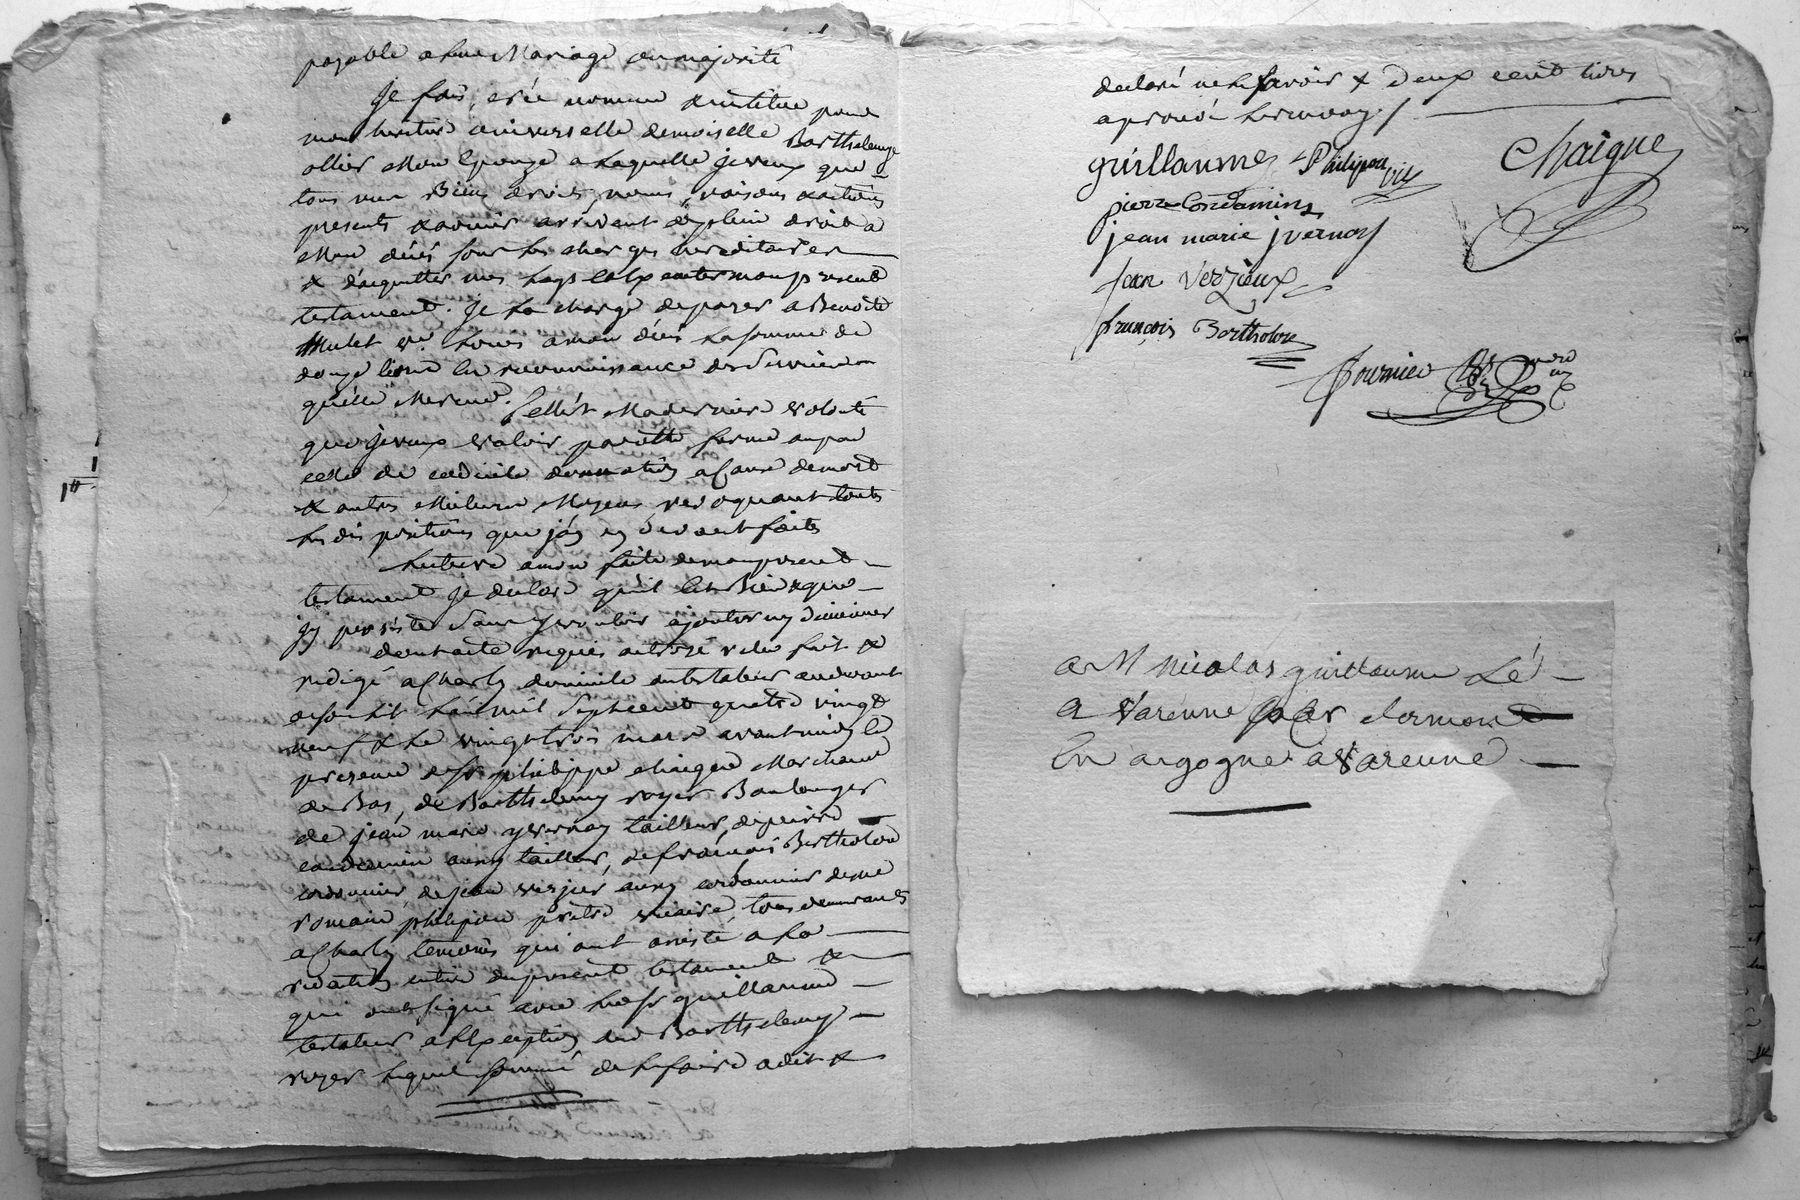 payable a leur Mariage ou majorité
Je fais, crée nomme & institue pour
mon heritiere universelle demoiselle Barthelemye
ollier Mon Epouze a laquelle je veux que
tous mes Biens droits noms, raisons & actions
presents & avenir arrivent de plein droit a
Mon décés sous les charges hereditaires
& d'acquitter mes legs & mon present
testament. Je la charge de payer a Benoite
Mulet lors a mon décés la somme de
douze livres en reconnoissance des Services
quelle Me rend. Telle est Ma derniere volonté
que je veux valoir par cette forme ou par
celle de codicile donnation a Cause de mort
& autres Meilleurs Moyens, revoquant toutes
les dispositions que j'ay cy devant faites
Lecture a moi faite de mon present
testament Je declare qu'il est Bien & que
j'y persiste Sans y vouloir ajouter ny diminuer
dont acte requis octroyé & leu fait &
redigé a Charly domicile du testateur avant
midy L'an mil Sept cent quatre vingt
neuf & le vingt trois mars avant midy en
presence de Sr philippe chaigne Marchand
de Bas, de Barthelemy royer Boulanger
de jean marie yvernay tailleur, de pierre
condamin aussy tailleur, de francois Bertholon
cordonnier, de jean verzieu aussy cordonnier de me
romain philipon prêtre vicaire, tous demeurants
a Charly temoins qui ont assisté a la
redaction entiere du present testament &
qui ont signé avec le Sr guillaume
testateur a l'exception dud Barthelemy
royer lequel sommé de le faire a dit &
declaré ne le savoir & deux cent livres
aprouvé le renvoy /
guillaume Philipon vic Chaigne
pierre Condamin
jean marie jvernay
Jean Verzieux
françois Bertholon
fournier
a M Nicolas guillaume
a Varenne par clermond
En argogne a Varenne